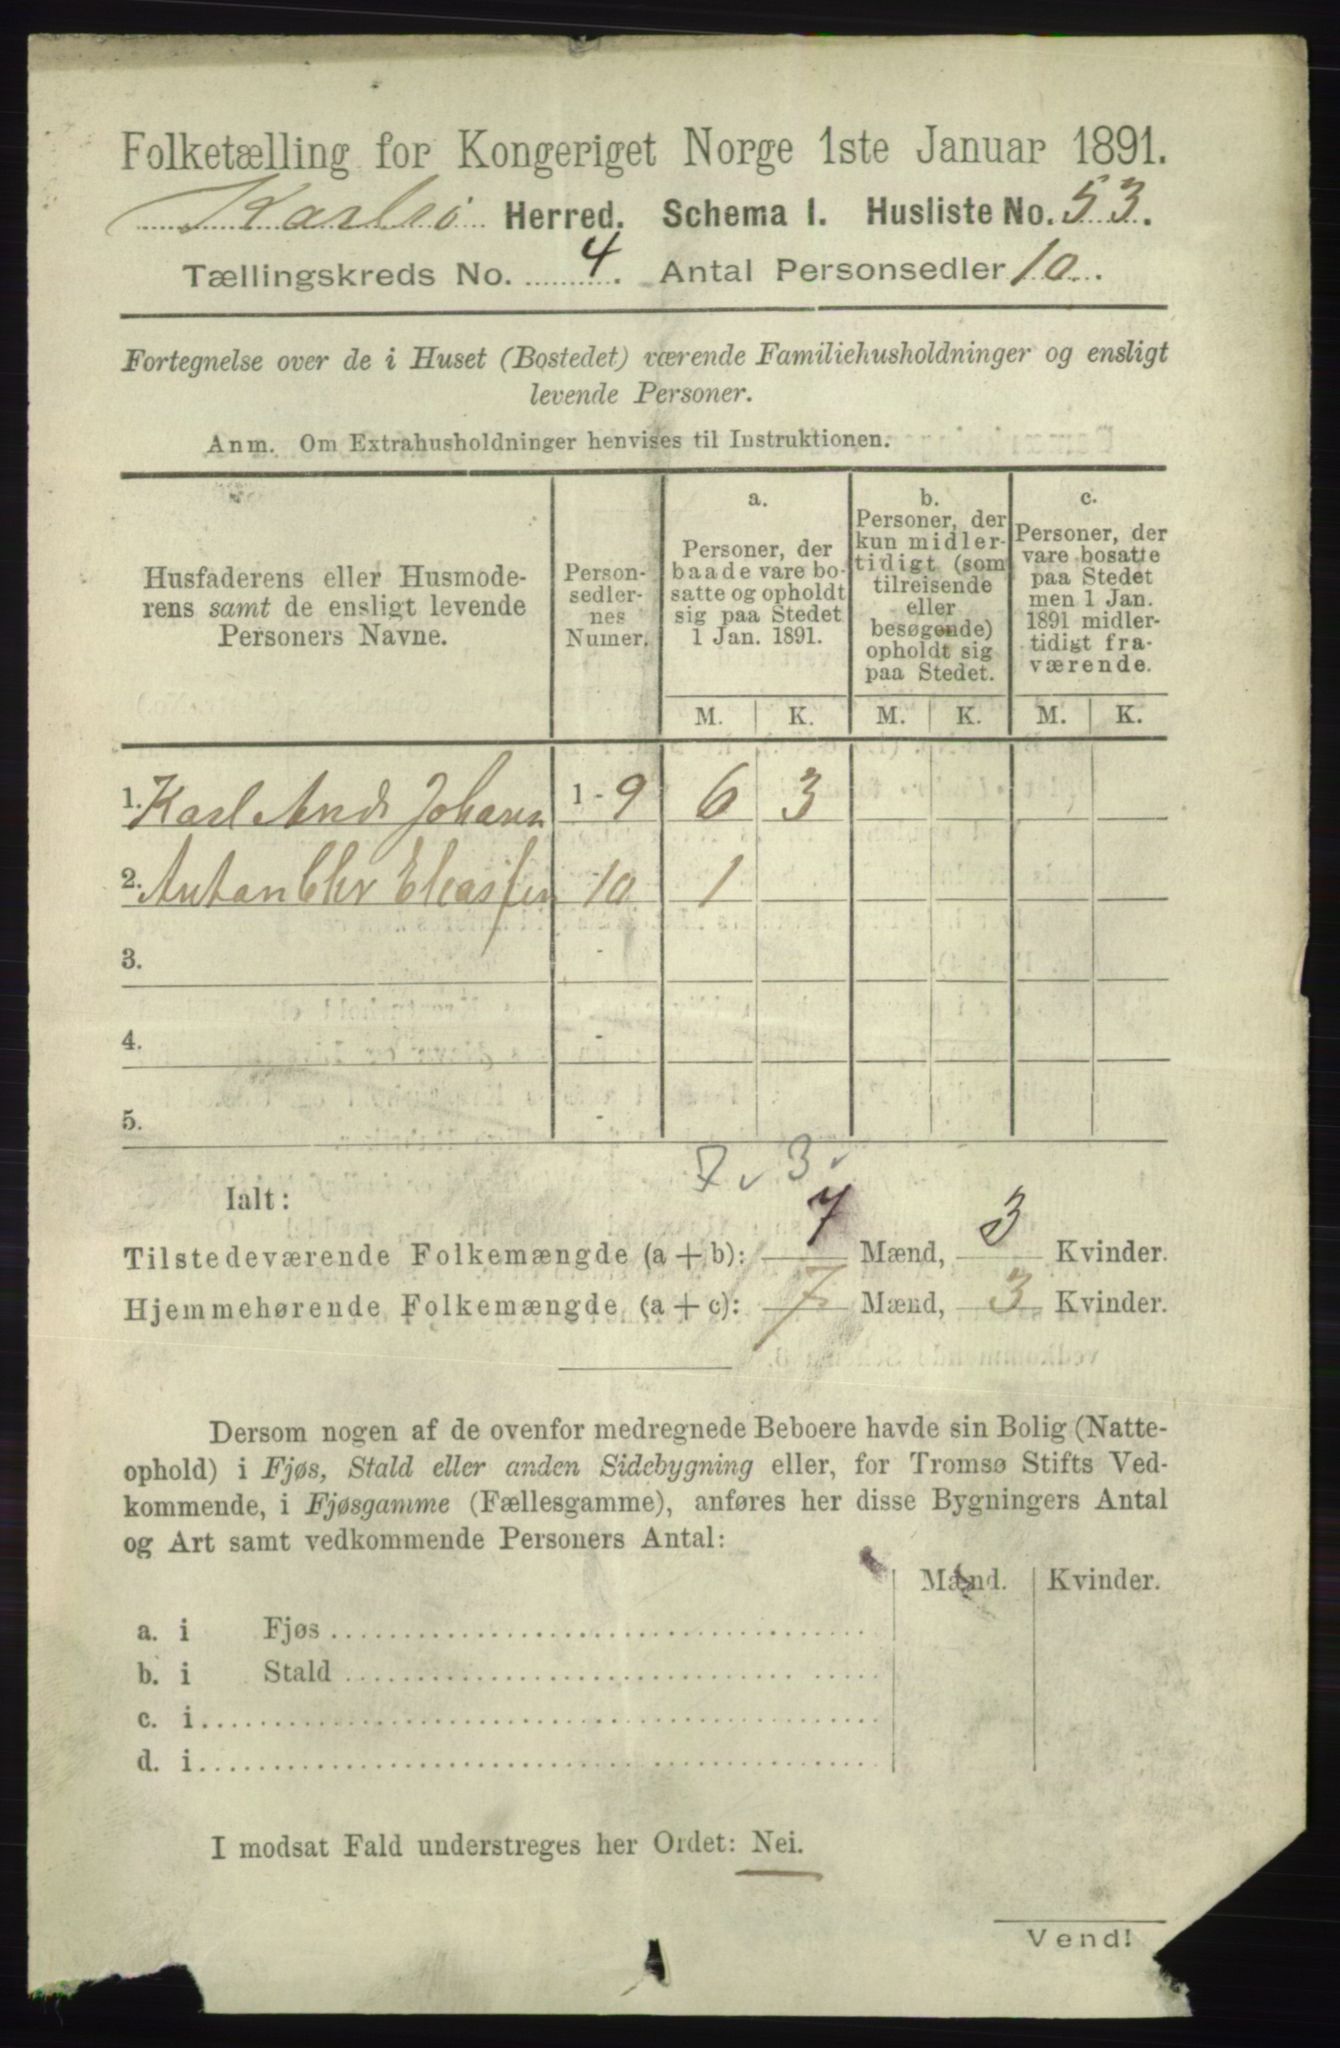 Folketælling for Kongeriget Norge 1ste Januar 1891.
Karlsø Herred. Schema 1. Husliste No. 53.
Tællingskreds No. 4. Antal Personsedler 10.
Fortegnelse over de i Huset (Bostedet) værende Familiehusholdninger og ensligt
levende Personer.
Anm. Om Extrahusholdninger henvises til Instruktionen.
Husfaderens eller Husmode-
rens samt de ensligt levende
Personers Navne.
Person-
sedler-
nes
Numer.
a.
Personer, der
baade vare bo-
satte og opholdt
sig paa Stedet
1 Jan. 1891.
b.
Personer, der
kun midler-
tidigt (som
tilreisende
eller
besøgende)
opholdt sig
paa Stedet.
c.
Personer, der
vare bosatte
paa Stedet
men 1 Jan.
1891 midler-
tidigt fra-
værende.
M. K. M. K. M. K.
1. Karl And. Johans 1 - 9 6 3
2. Antan Chr Eliassen 10 1
3. -
4. -
5. -
7 3
Ialt:
Tilstedeværende Folkemængde (a + b): 7 Mænd, 3 Kvinder.
Hjemmehørende Folkemængde (a + c): 7 Mænd, 3 Kvinder.
Dersom nogen af de ovenfor medregnede Beboere havde sin Bolig (Natte-
ophold) i Fjøs, Stald eller anden Sidebygning eller, for Tromsø Stifts Ved-
kommende, i Fjøsgamme (Fællesgamme), anføres her disse Bygningers Antal
og Art samt vedkommende Personers Antal:
Mænd. Kvinder.
a. i Fjøs
b. i Stald
c. i
d. i
I modsat Fald understreges her Ordet: Nei.
Vend!